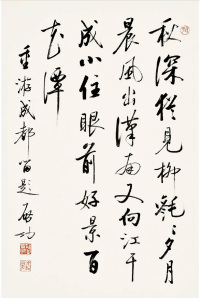 秋深猶見柳毿〻夕月
晨風出漢南又向江干
成小住眼前好景百
花潭
重游成都留題 启功